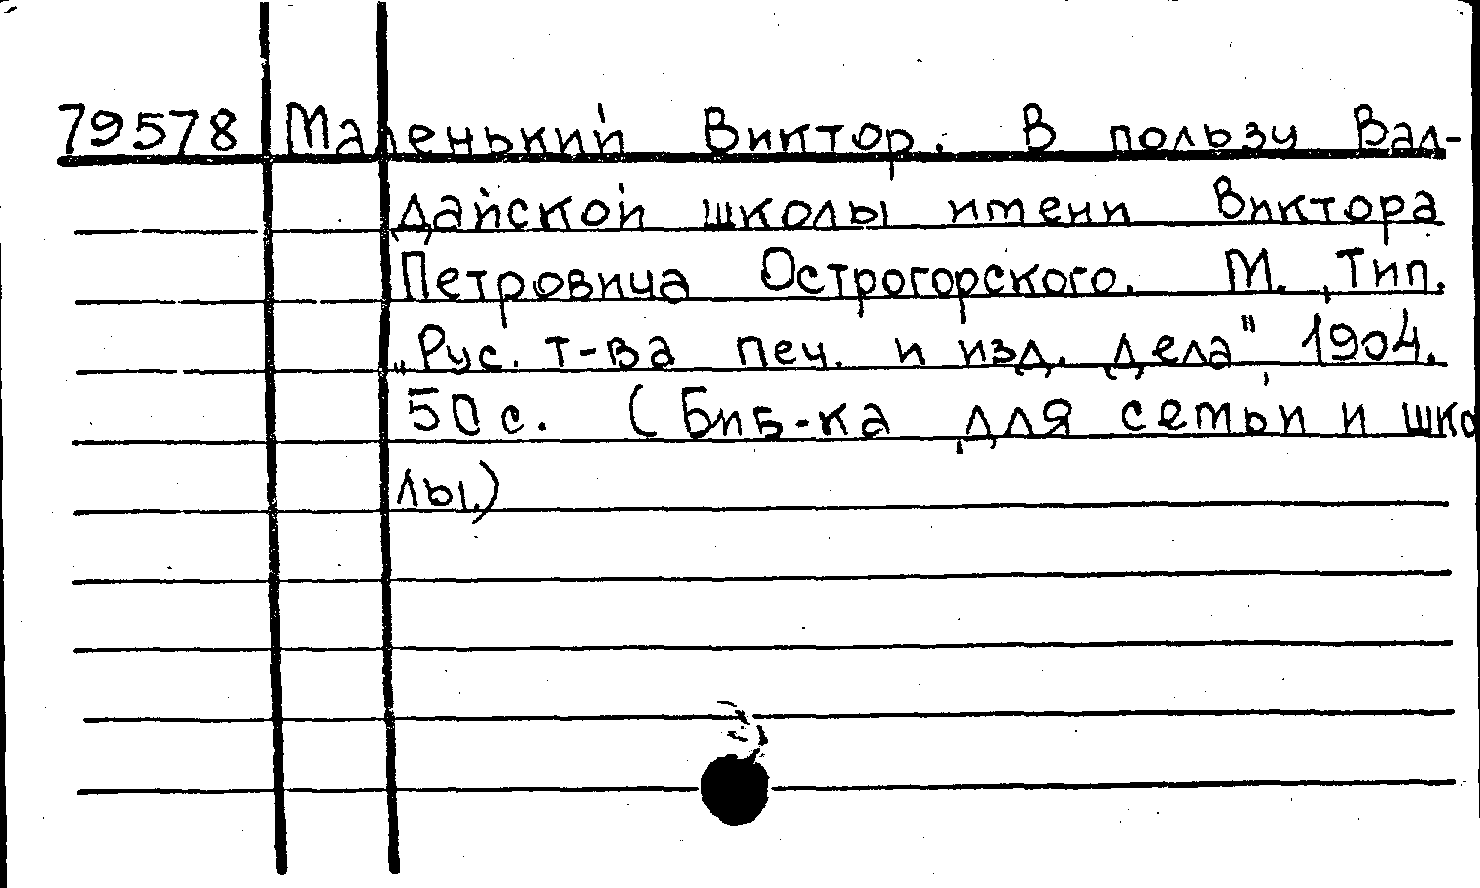 79578 Маленький Виктор. В пользу Вал-
дайской школы имени Виктора
Петровича Острогорского. М., Тип.
„Рус. т-ва печ. и изд. дела", 1904.
50 с. (Биб-ка для семьи и шко
лы.)